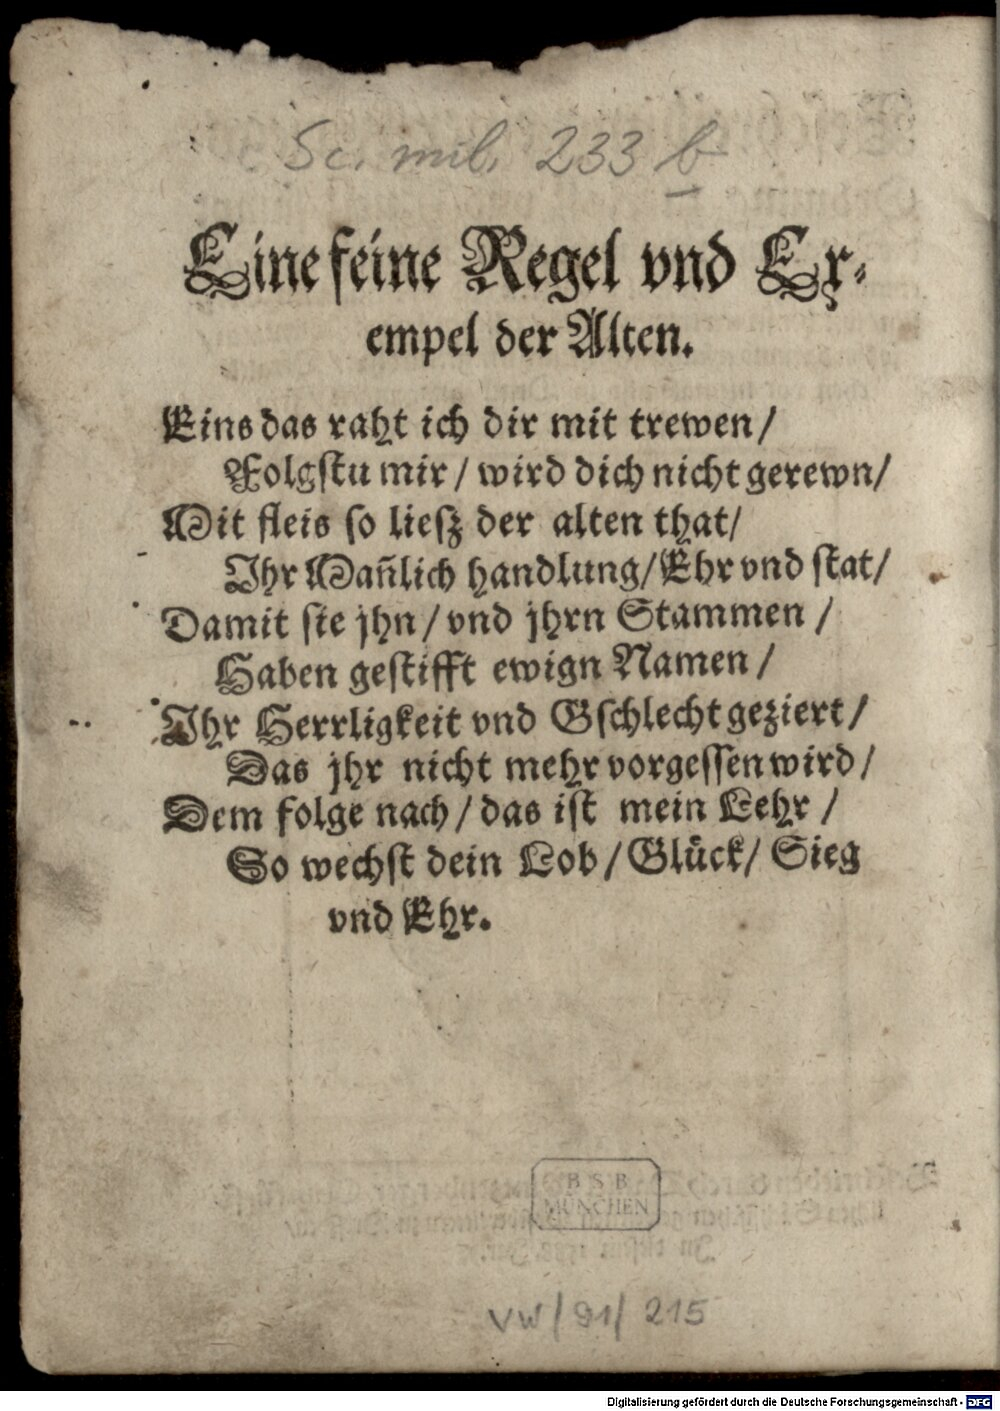 Sc. mil. 233 b
Eine feine Regel vnd Ex⸗
empel der Alten.
Eins das raht ich dir mit trewen /
Folgstu mir / wird dich nicht gerewn /
Mit fleis so liesz der alten that /
Ihr Man̄lich handlung / Ehr vnd stat /
Damit sie jhn / vnd jhrn Stammen /
Haben gestifft ewign Namen /
Ihr Herrligkeit vnd Gschlecht geziert /
Das jhr nicht mehr vorgessen wird /
Dem folge nach / das ist mein Lehr /
So wechst dein Lob / Glück / Sieg
vnd Ehr.
B S B
MÜNCHEN
VW / 91 / 215
Digitalisierung gefördert durch die Deutsche Forschungsgemeinschaft - DFG